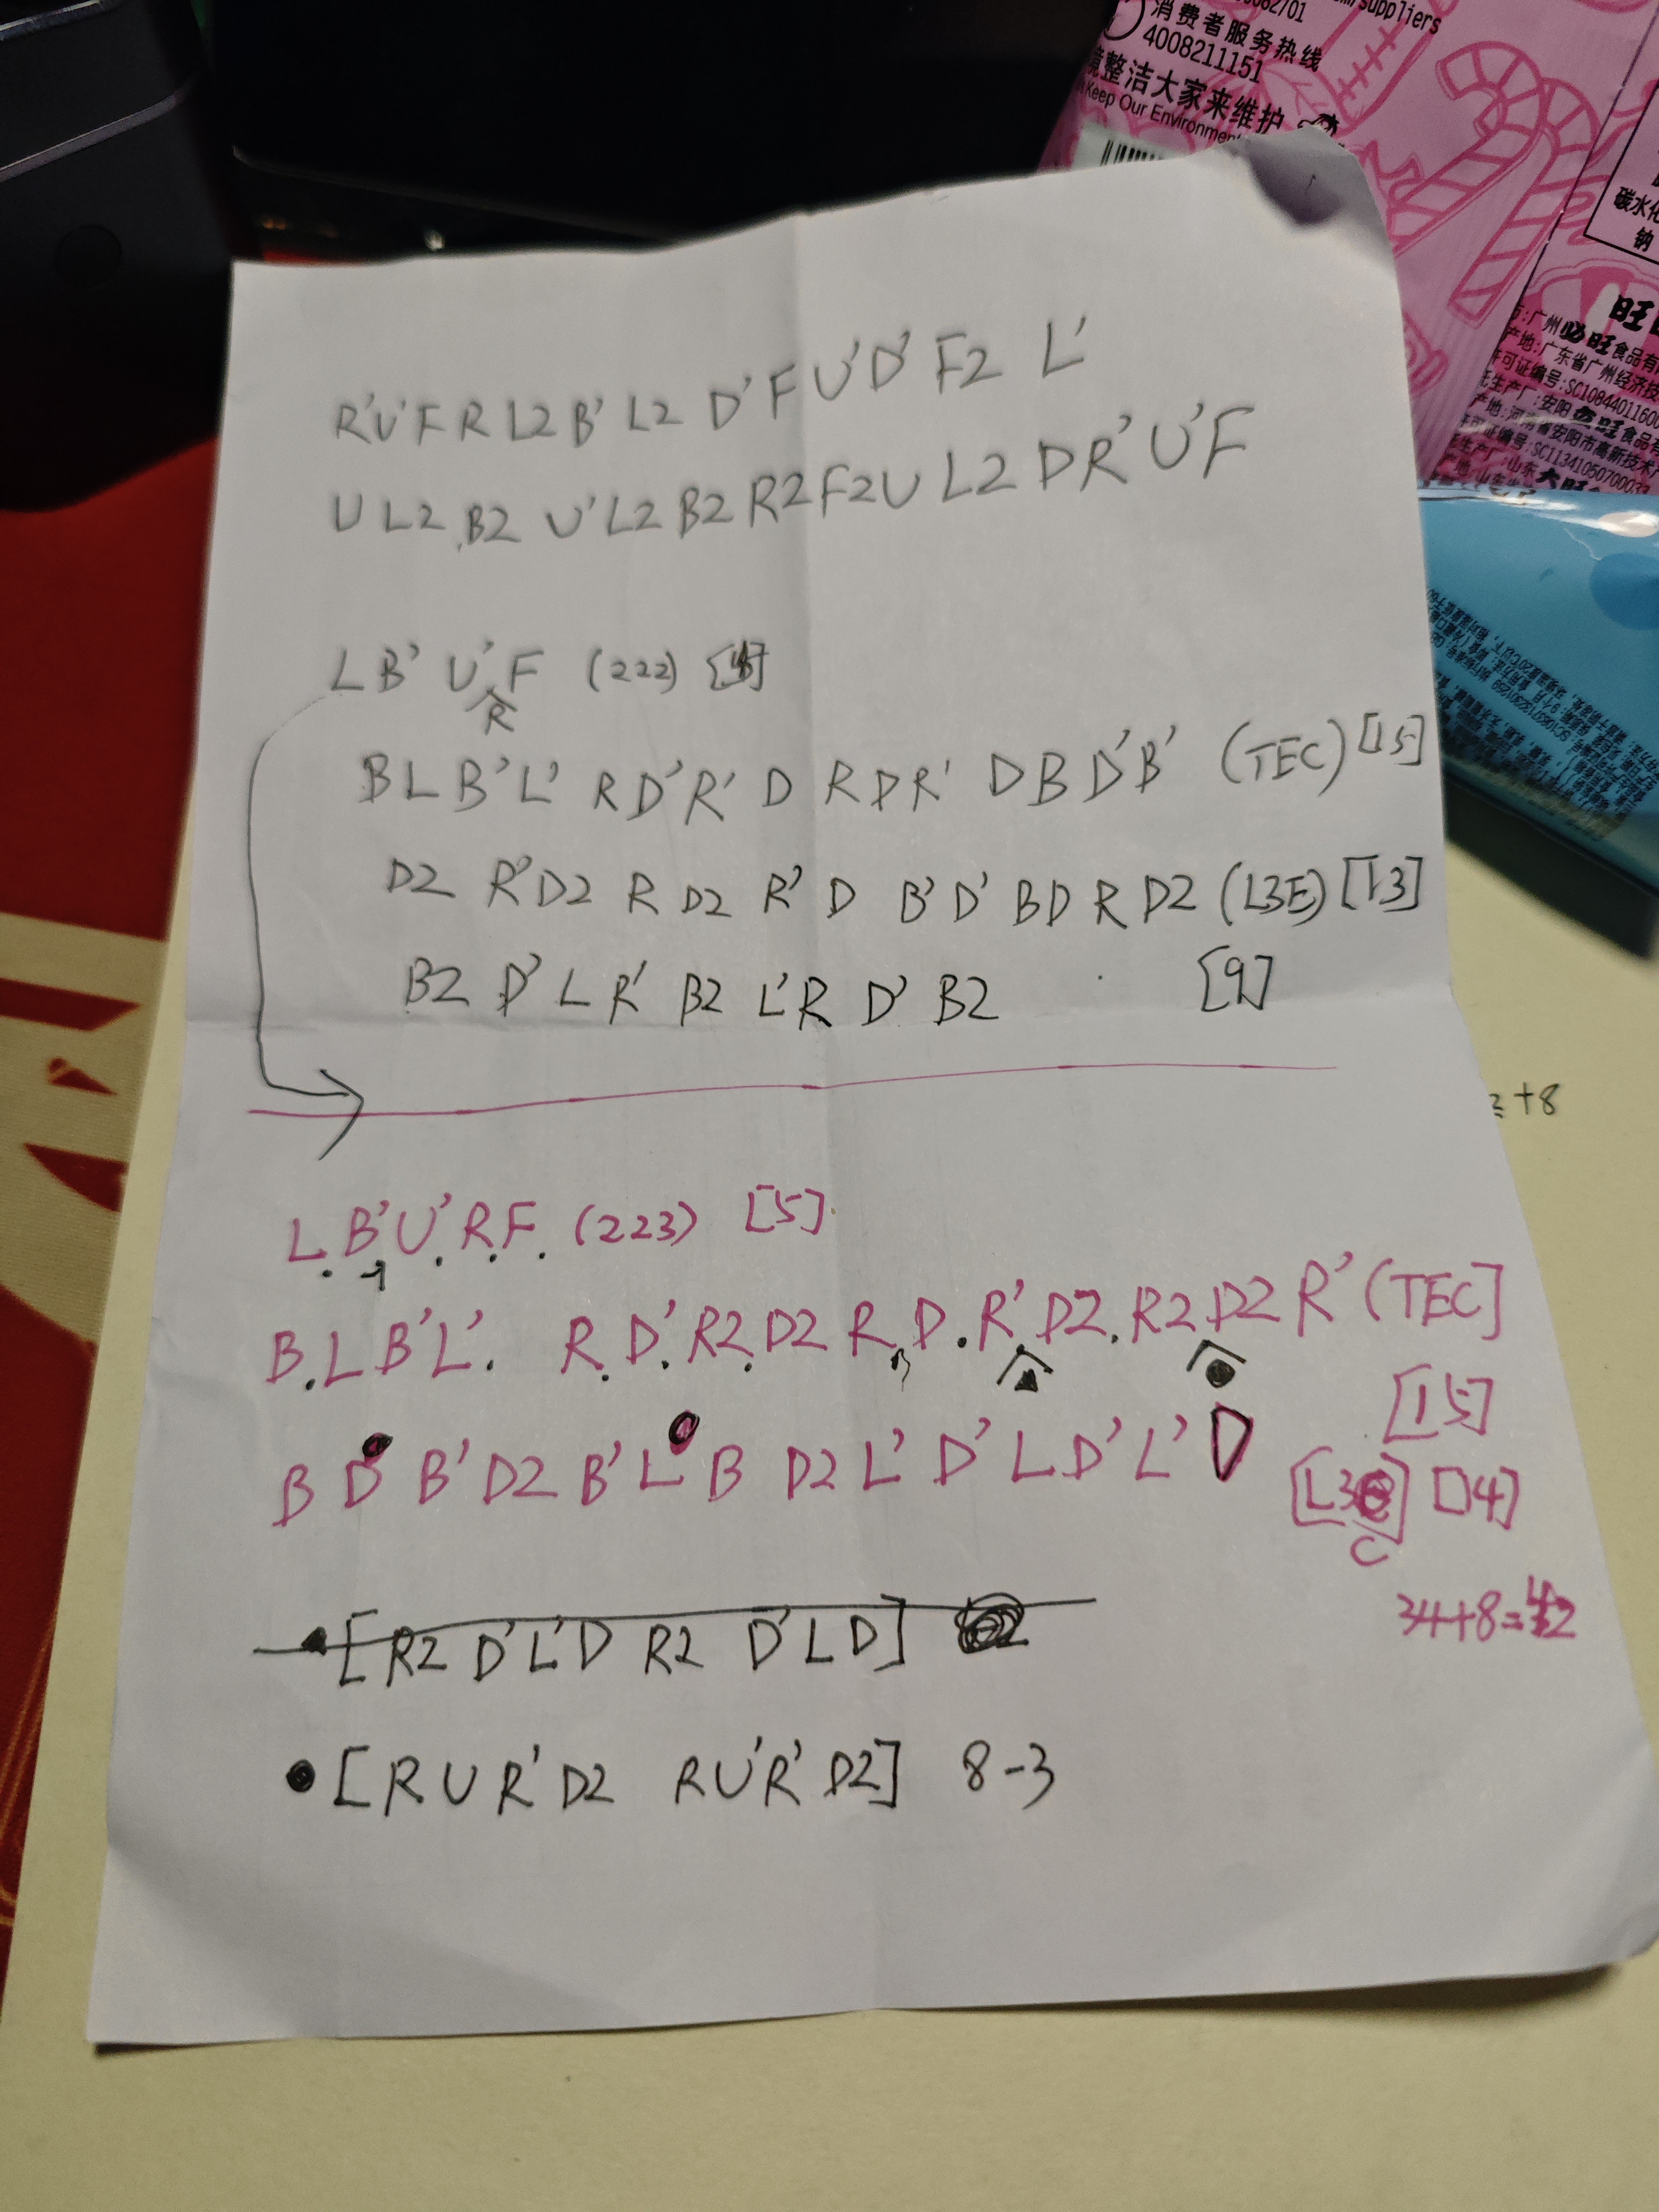 消费者服务热线
4008211151
境整洁大家来维护
Keep Our Environment
suppliers
碳水化
钠
旺旺
R'U'F R L2 B' L2 D' F U' D' F2 L'
U L2 B2 U' L2 B2 R2 F2 U L2 D R' U' F
L B' U' F (222)
R
B L B' L' R D' R' D R D R' D B D' B' (TEC) [15]
D2 R' D2 R D2 R' D B' D' B D R D2 (L3E) [13]
B2 D' L R' B2 L' R D' B2 [9]
+8
L B' U' R F (223) [5]
B L B' L' R D' R2 D2 R D R' D2 R2 D2 R' (TEC]
[15]
B D B' D2 B' L B D2 L' D' L D' L' D [L3 C] [14]
34+8=42
[R2 D' L' D R2 D' L D]
[R U R' D2 R U' R' D2] 8-3